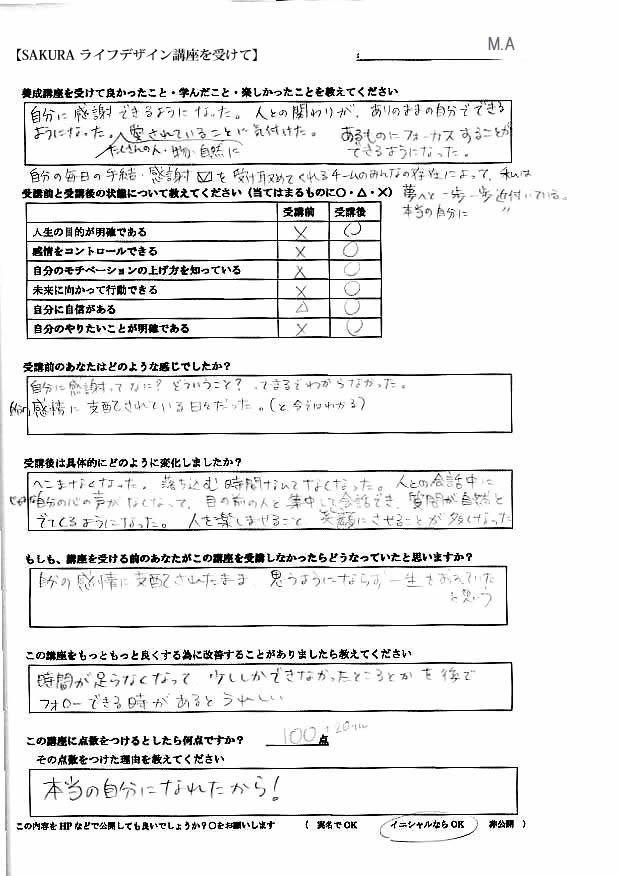 M.A
【SAKURA ライフデザイン講座を受けて】
養成講座を受けて良かったこと・学んだこと・楽しかったことを教えてください
自分に感謝できるようになった。人との関わりが、ありのままの自分でできる
ようになった。愛されていることに気付けた。 あるものにフォーカスすることが
たくさんの人・物・自然に できるようになった。
自分の毎日の手紙・感謝 を受け取めてくれるチームのみんなの存在によって、私は
受講前と受講後の状態について教えてください（当てはまるものに○・△・×） 夢へと一歩一歩近付いている。
本当の自分に 〃
受講前 受講後
人生の目的が明確である × ○
感情をコントロールできる × ○
自分のモチベーションの上げ方を知っている × ○
未来に向かって行動できる × ○
自分に自信がある △ ○
自分のやりたいことが明確である × ○
受講前のあなたはどのような感じでしたか？
自分に感謝ってなに？どういうこと？ってまるでわからなかった。
感情に支配されている日々だった。（と今ではわかる）
受講後は具体的にどのように変化しましたか？
へこまなくなった。落ち込む時間なんてなくなった。人との会話中に
自分の心の声がなくなって、目の前の人と集中して会話でき、質問が自然と
でてくるようになった。人を楽しませること、笑顔にさせることが多くなった
もしも、講座を受ける前のあなたがこの講座を受講しなかったらどうなっていたと思いますか？
自分の感情に支配されたまま、思うようにならず一生をおえていた
と思う
この講座をもっともっと良くする為に改善することがありましたら教えてください
時間が足らなくなって 少ししかできなかったところとかを後で
フォローできる時があるとうれしい
この講座に点数をつけるとしたら何点ですか？ 100 点
その点数をつけた理由を教えてください
本当の自分になれたから！
この内容を HP などで公開しても良いでしょうか？○をお願いします （ 実名で OK イニシャルなら OK 非公開 ）